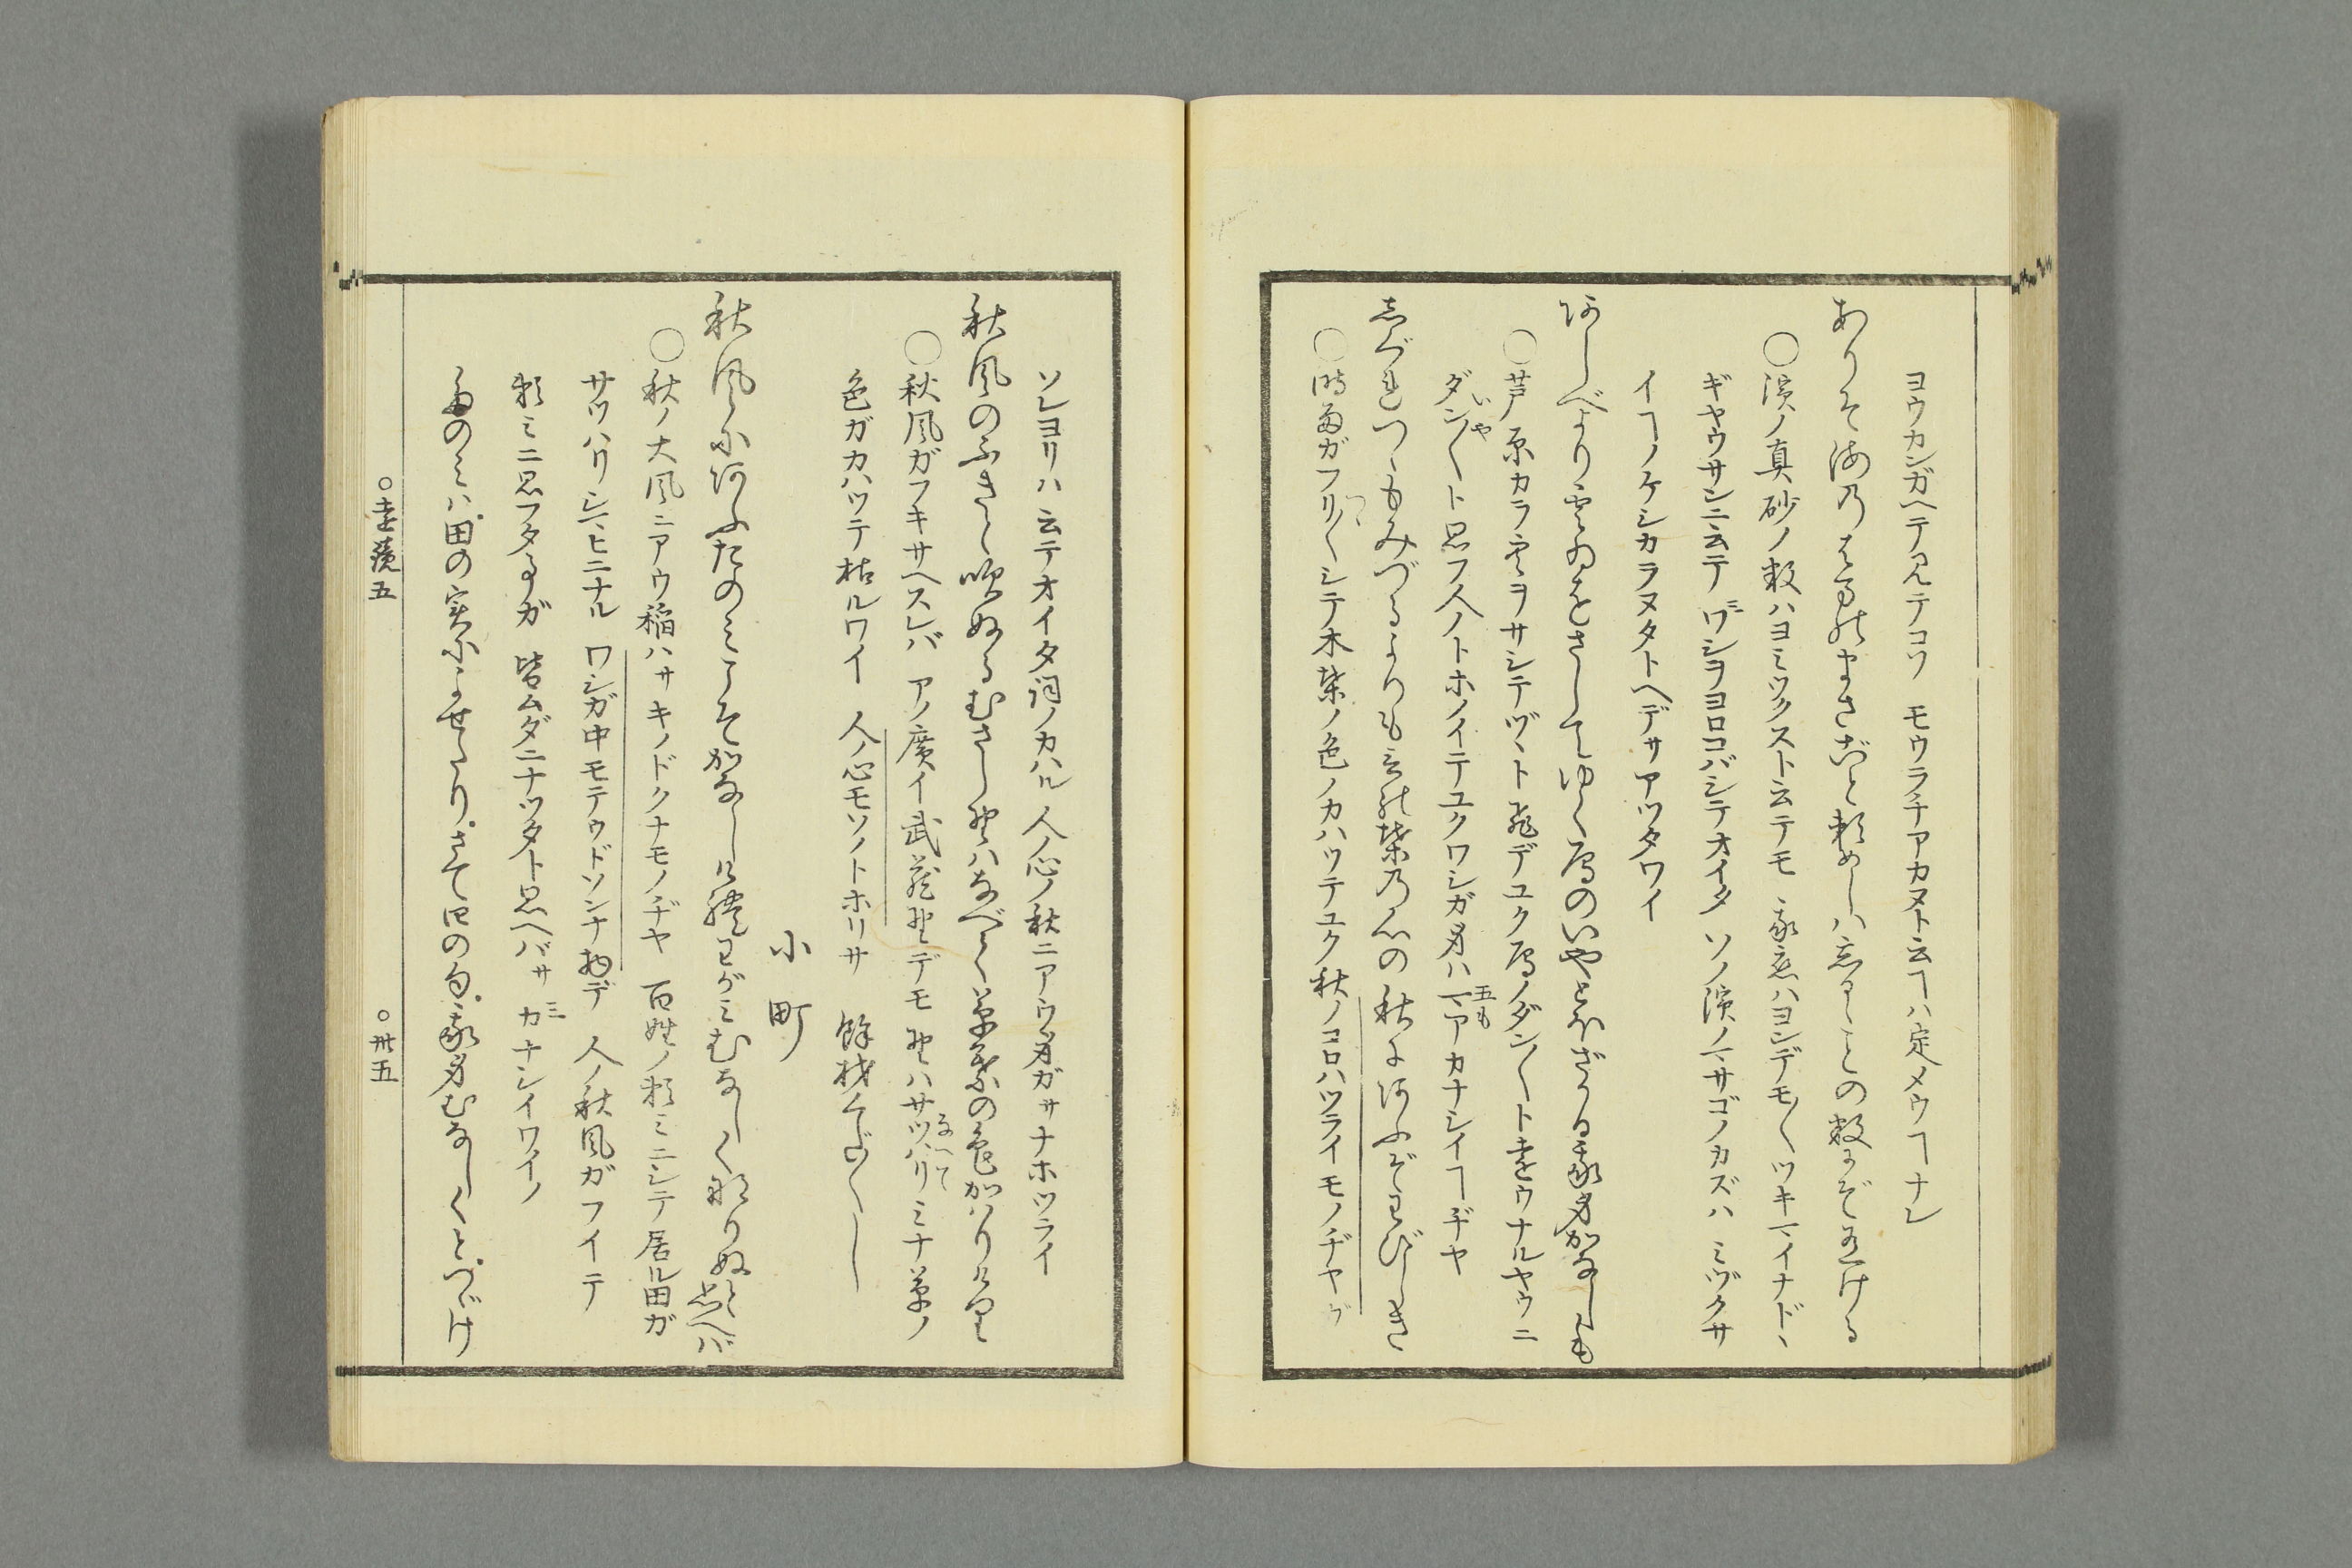 ヨウカンガヘテ見テコソ モウラチアカヌト云ヿハ定メウヿナレ
ありそ海乃はまのまさごと頼めしハ忘るゝことの数にぞ有ける
〇濱ノ真砂ノ数ハヨミツクスト云テモ 我恋ハヨンデモ〳〵ツキマイナドヽ
ギヤウサンニ云テ ワシヲヨロコバシテオイタ ソノ濱ノマサゴノカズハ ミヅクサ
イヿノケシカラヌタトヘデサアツタワイ
あしべより雲ゐをさしてゆく鴈のいやとほざかる我身かなしも
〇芦原カラ雲ヲサシテヅヽト飛デユク鴈ノダン〳〵ト遠ウナルヤウニ
ダン〳〵ト思フ人ノトホノイテユクワシガ身ハ マアカナシイヿヂヤ
いや
五も
志ぐれつゝもみづるよりも言の葉乃心の秋にあふぞわびしき
〇時雨ガフリ〳〵シテ木葉ノ色ノカハツテユク秋ノコロハツライモノヂヤガ
つゝ
ソレヨリハ 云テオイタ詞ノカハル 人ノ心ノ秋ニアウ身ガサナホツライ
秋風のふきと吹ぬるむさし野ハなべて草葉の色かハりけり
〇秋風ガフキサヘスレバ アノ廣イ武蔵野デモ 野ハサツハリミナ草ノ
なべて
色ガカハツテ枯ルワイ 人ノ心モソノトホリサ 餘材くだ〳〵し
小町
秋風にあふたのミこそかなしけれわがミむなしく成りぬと思へバ
〇秋ノ大風ニアウ稲ハサキノドクナモノヂヤ 百姓ノ頼ミニシテ居ル田ガ
サツハリシヒニナル ワシガ中モテウドソンナ物デ 人ノ秋風ガフイテ
頼ミニ思フタ事ガ 皆ムダニナツタト思ヘバサ カナシイワイノ
たのミハ、田の実によせたり。さて四の句、我身むなしくとつゞけ
〇遠鏡五
〇卅五